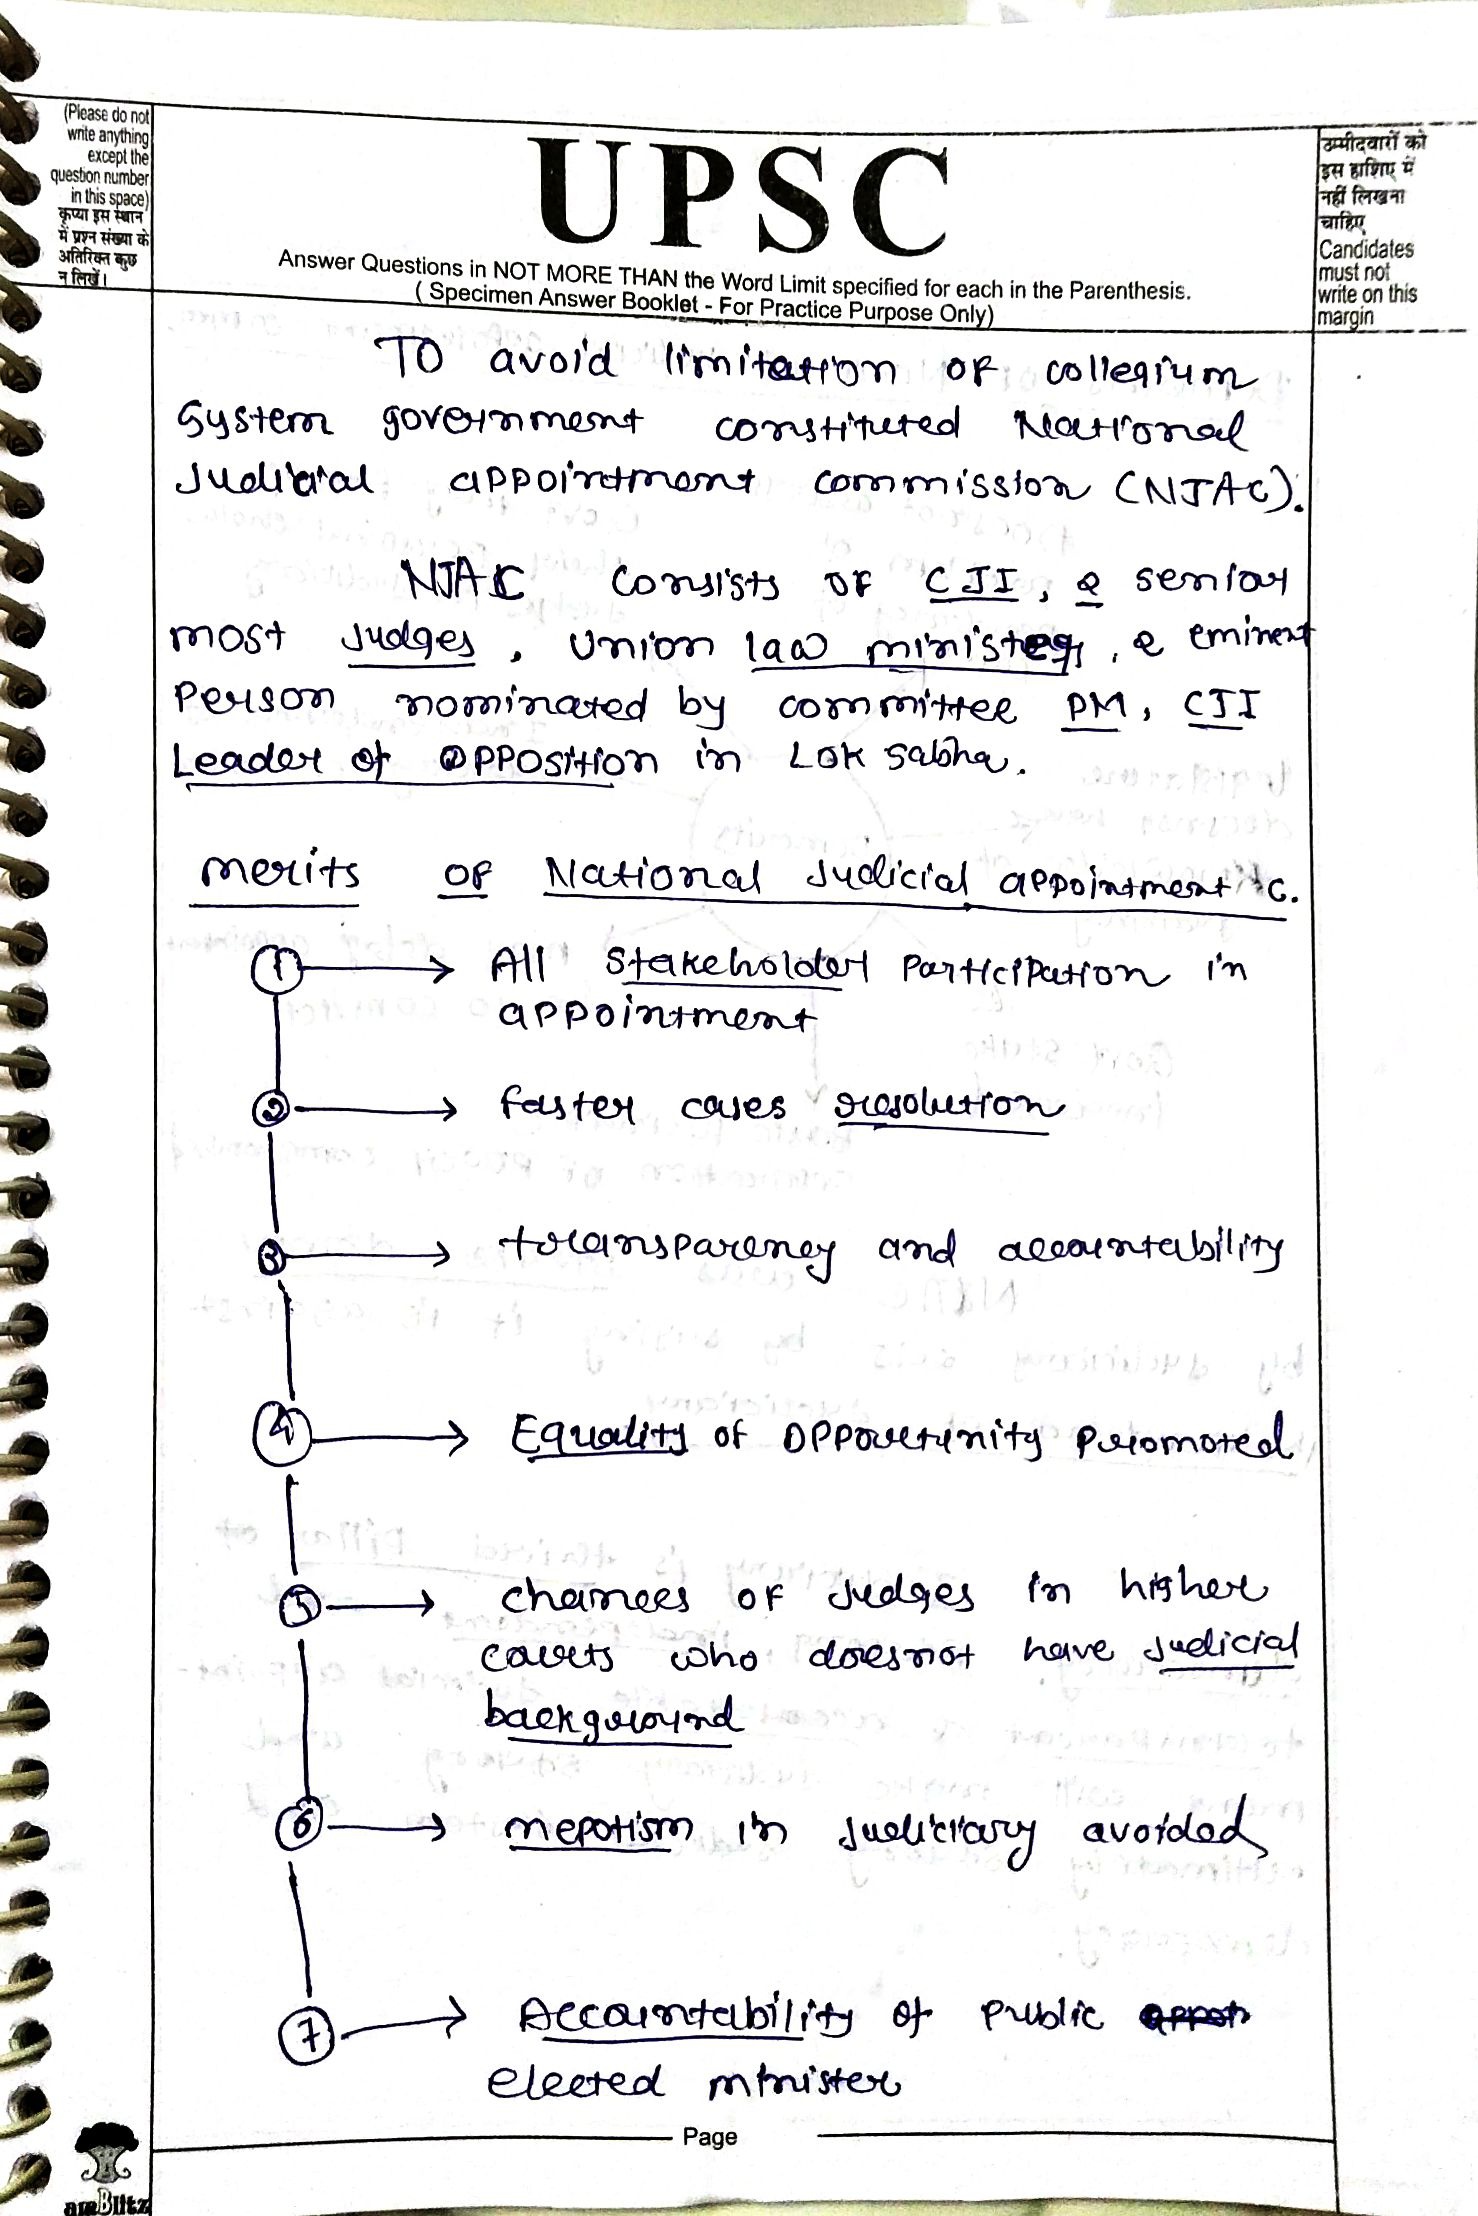 (Please do not
write anything
except the
question number
in this space)
कृप्या इस स्थान
में प्रश्न संख्या के
अतिरिक्त कुछ
न लिखें।
UPSC
Answer Questions in NOT MORE THAN the Word Limit specified for each in the Parenthesis.
( Specimen Answer Booklet - For Practice Purpose Only)
उम्मीदवारों को
इस हाशिए में
नहीं लिखना
चाहिए
Candidates
must not
write on this
margin
TO avoid limitation of collegium
System government constituted National
Judicial appointment commission (NJAC).
NJAC consists of CJI, 2 senior
most Judges, Union law minister, 2 eminent
Person nominated by committee PM, CJI
Leader of Opposition in Lok Sabha.
merits of National Judicial appointment c.
1 → All stakeholder Participation in
appointment
2 → faster cases resolution
3 → transparency and accountability
4 → Equality of opportunity promoted
5 → chances of Judges in higher
courts who doesnot have Judicial
background
6 → nepotism in Judiciary avoided
7 → Accountability of Public
elected minister
Page
amBlitz